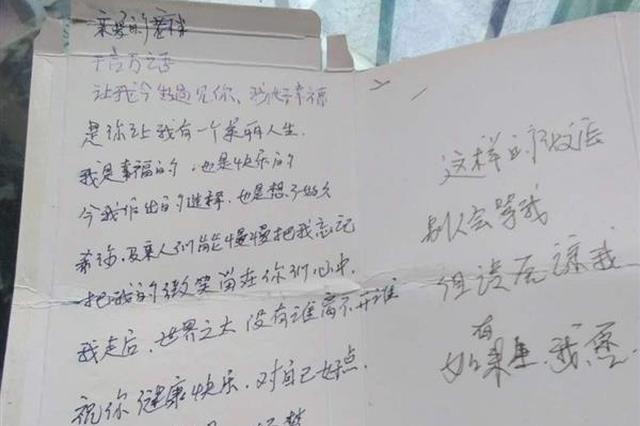 亲爱的蓉祥
千言万语
让我今生遇见你、我好幸福
是你让我有一个美丽人生.
我是幸福的,也是快乐的
今我作出的选择,也是想了好久
希望,家人们能慢慢把我忘记
把我的微笑留在你们心中.
我走后,世界之大 没有谁离不开谁
祝你健康快乐,对自己好点.
这样的
别人会笑我
但请原谅我
如果有 我